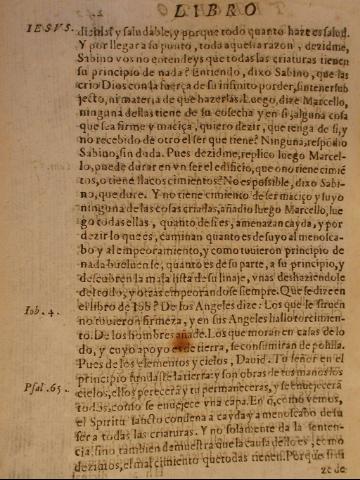 LIBRO
IESVS.
dizillas y saludable, y porque todo quanto haze es salud.
Y por llegar a su punto, toda aquella razon, dezidme,
Sabino vos no entendeys que todas las criaturas tienen
su principio de nada? entiendo, dixo Sabino, que las
crio Dios con la fuerça de su infinito poder, sin tener sub
jecto, ni materia de que hazerlas. Luego, dize Marcello,
ninguna dellas tiene de su cosecha y en si, alguna cosa
que sea firme y maciça, quiero dezir, que tenga de si, y
no recebido de otro el ser que tiene? Ninguna, respōdio
Sabino, sin duda. Pues dezidme, replico luego Marcel-
lo, puede durar en vn ser el edificio, que o no tiene cimiē
tos, o tiene flacos cimientos? No es possible, dixo Sabi-
no, que dure. Y no tiene cimiento de ser maciço y suyo
ninguna de las cosas criadas, añadio luego Marcello, lue
go todas ellas, quanto de si es, amenazan cayda, y por
dezir lo que es, caminan quanto es de suyo al menosca-
bo y al empeoramiento, y como tuuieron principio de
nada bueluense, quanto es de su parte, a su principio, y
descubren la mala lista de su linaje, vnas deshaziendose
del todo, y otras empeorandose siempre. Que se dize en
el libro de Iob? De los Angeles dize: Los que le siruen
Iob. 4.
no tuuieron firmeza, y en sus Angeles hallo torcimien-
to. De los hombres añade. Los que moran en casas de lo
do, y cuyo apoyo es de tierra, se consumiran de polilla.
Pues de los elementos y cielos, Dauid: Tu señor en el
Psal. 65.
principio fundaste la tierra: y son obras de tus manos los
cielos, ellos pereceran y tu permaneceras, y se enuejecerā
todos, como se enuejece vna capa. En q̃, como vemos,
el Spiritu sancto condena a cayda y a menoscabo de su
ser a todas las criaturas. Y no solamente da la senten-
cia, sino tambien demuestra que la causa dello es, como
dezimos, el mal cimiento que todas tienen. Porque si di
ze de